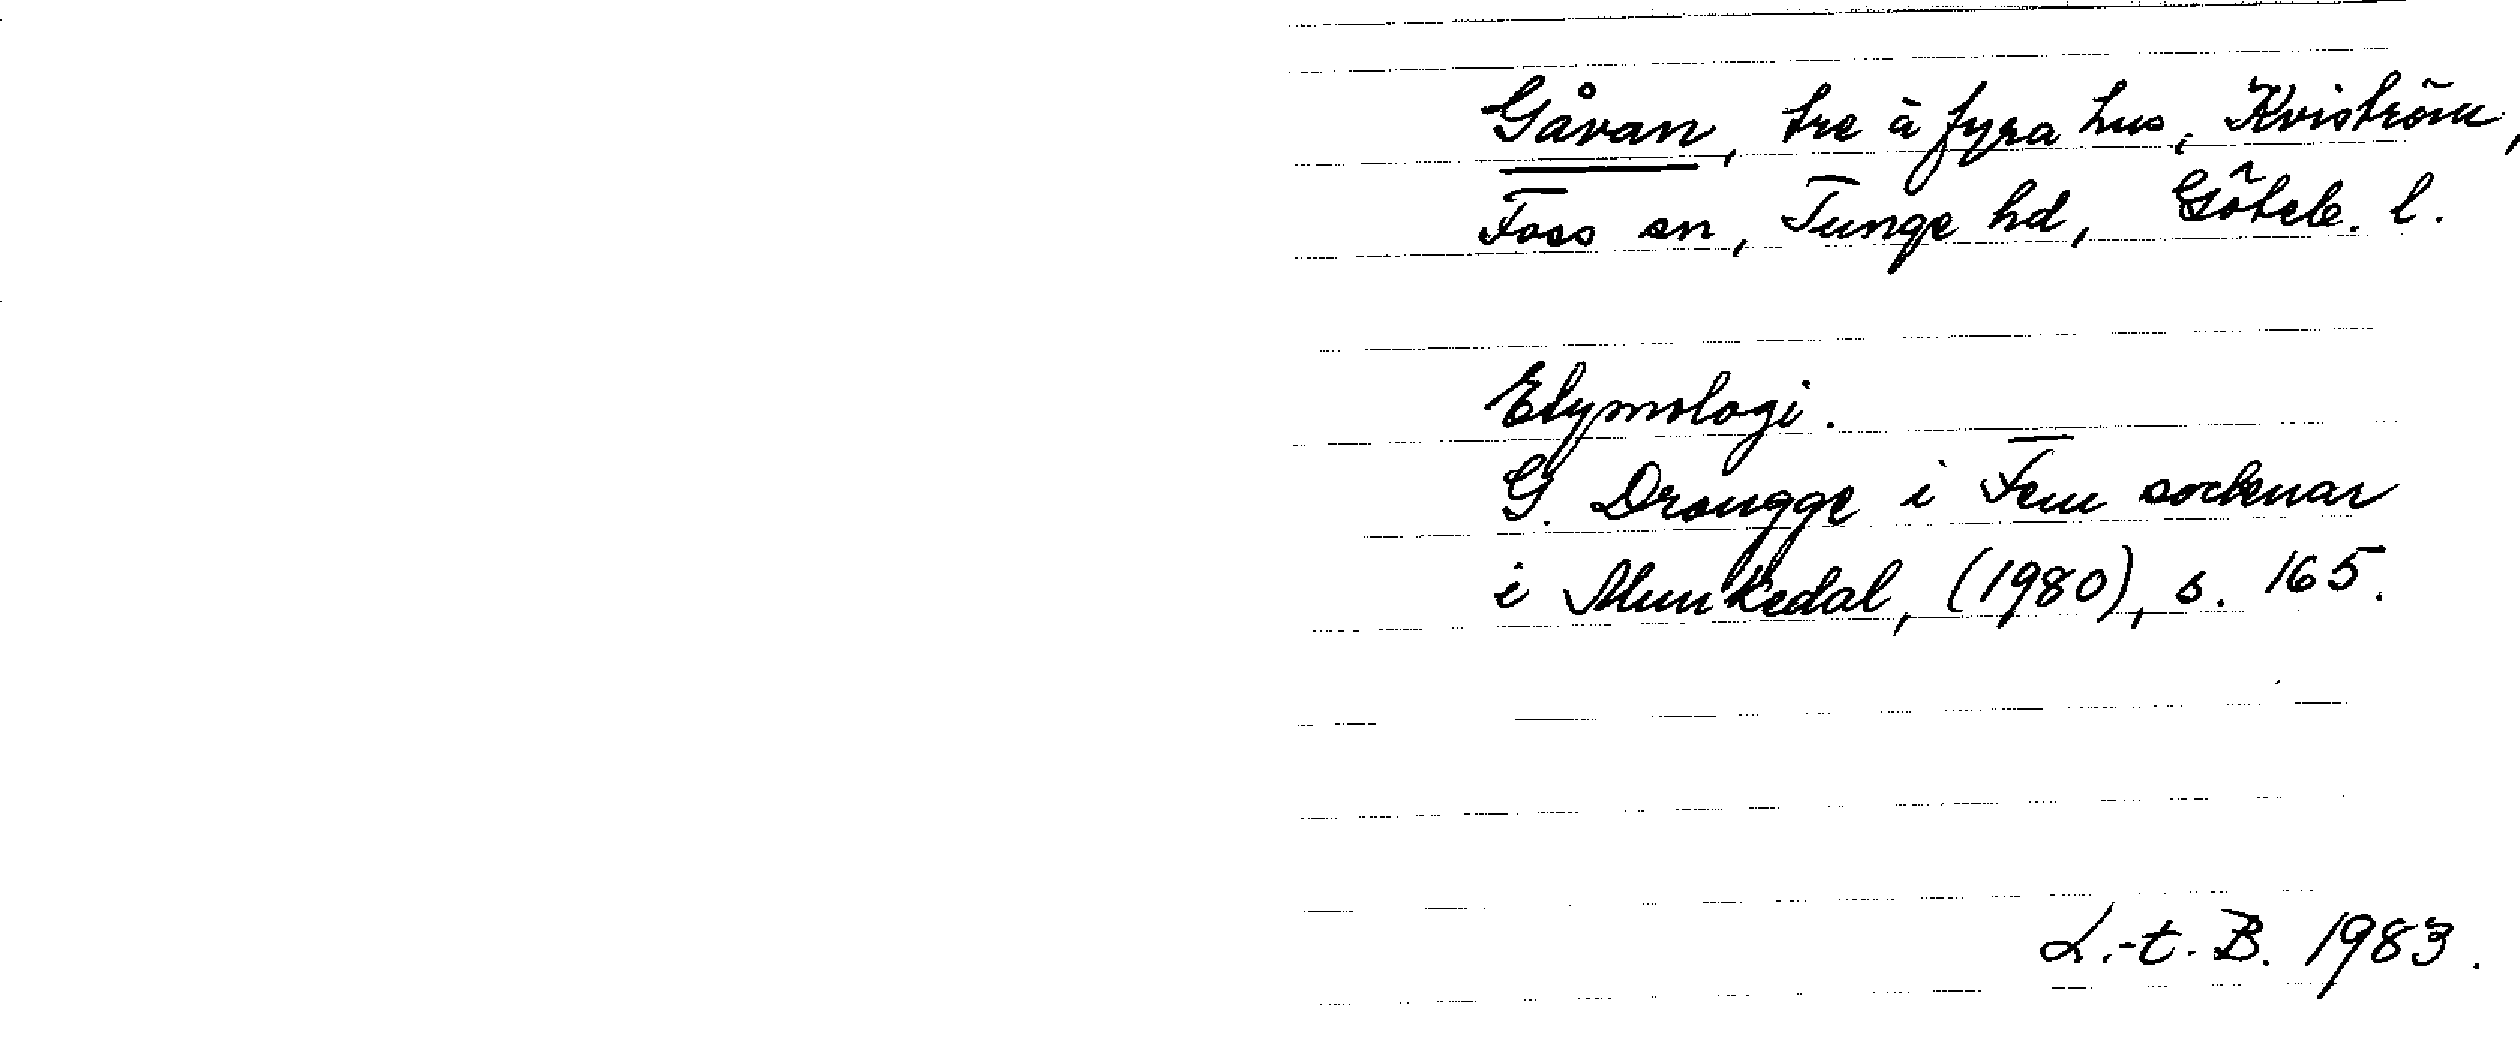 Gåvan, tre à fyra hus, Kviström,
Foss sn, Tunge hd, Göteb. l.
Etymologi.
G. Drougge i Fem socknar
i Munkedal, (1980), s. 165.
L.-t. B. 1983.